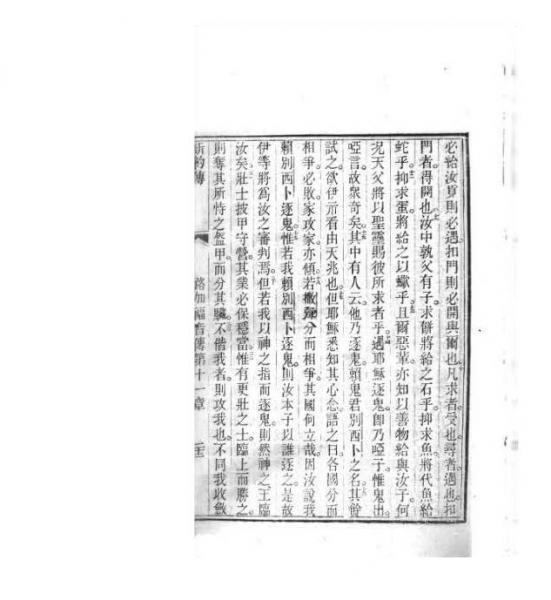 必給汝覓則必遇。扣門則必開與爾也。凡求者受也。尋者遇也。扣
門者得開也。汝中孰父有子求餅將給之石乎。抑求魚將代魚給
蛇乎。抑求蛋將給之以蠍乎。且爾惡輩亦知以善物給與汝子。何
况天父將以聖靈賜彼所求者乎。遇耶穌逐鬼。卽乃啞子。惟鬼出。
啞言故衆奇矣。其中有人云。他乃逐鬼賴鬼君別西卜之名。其餘
試之。欲伊示看由天兆也。但耶穌悉知其心念。語之曰。各國分而
相爭必敗。家攻家亦傾。若撒殫分而相爭。其國何立哉。因汝說我
賴別西卜逐鬼。惟若我賴別西卜逐鬼。則汝本子以誰逐之。是故
伊等將為汝之審判焉。但若我以神之指而逐鬼。則然神之王臨
汝矣。壯士披甲守營。其業必保穩當。惟有更壯之士臨上而勝之。
則奪其所恃之盔甲。而分其贓。不偕我者則攻我也。不同我收斂
路加福音傳第十一章